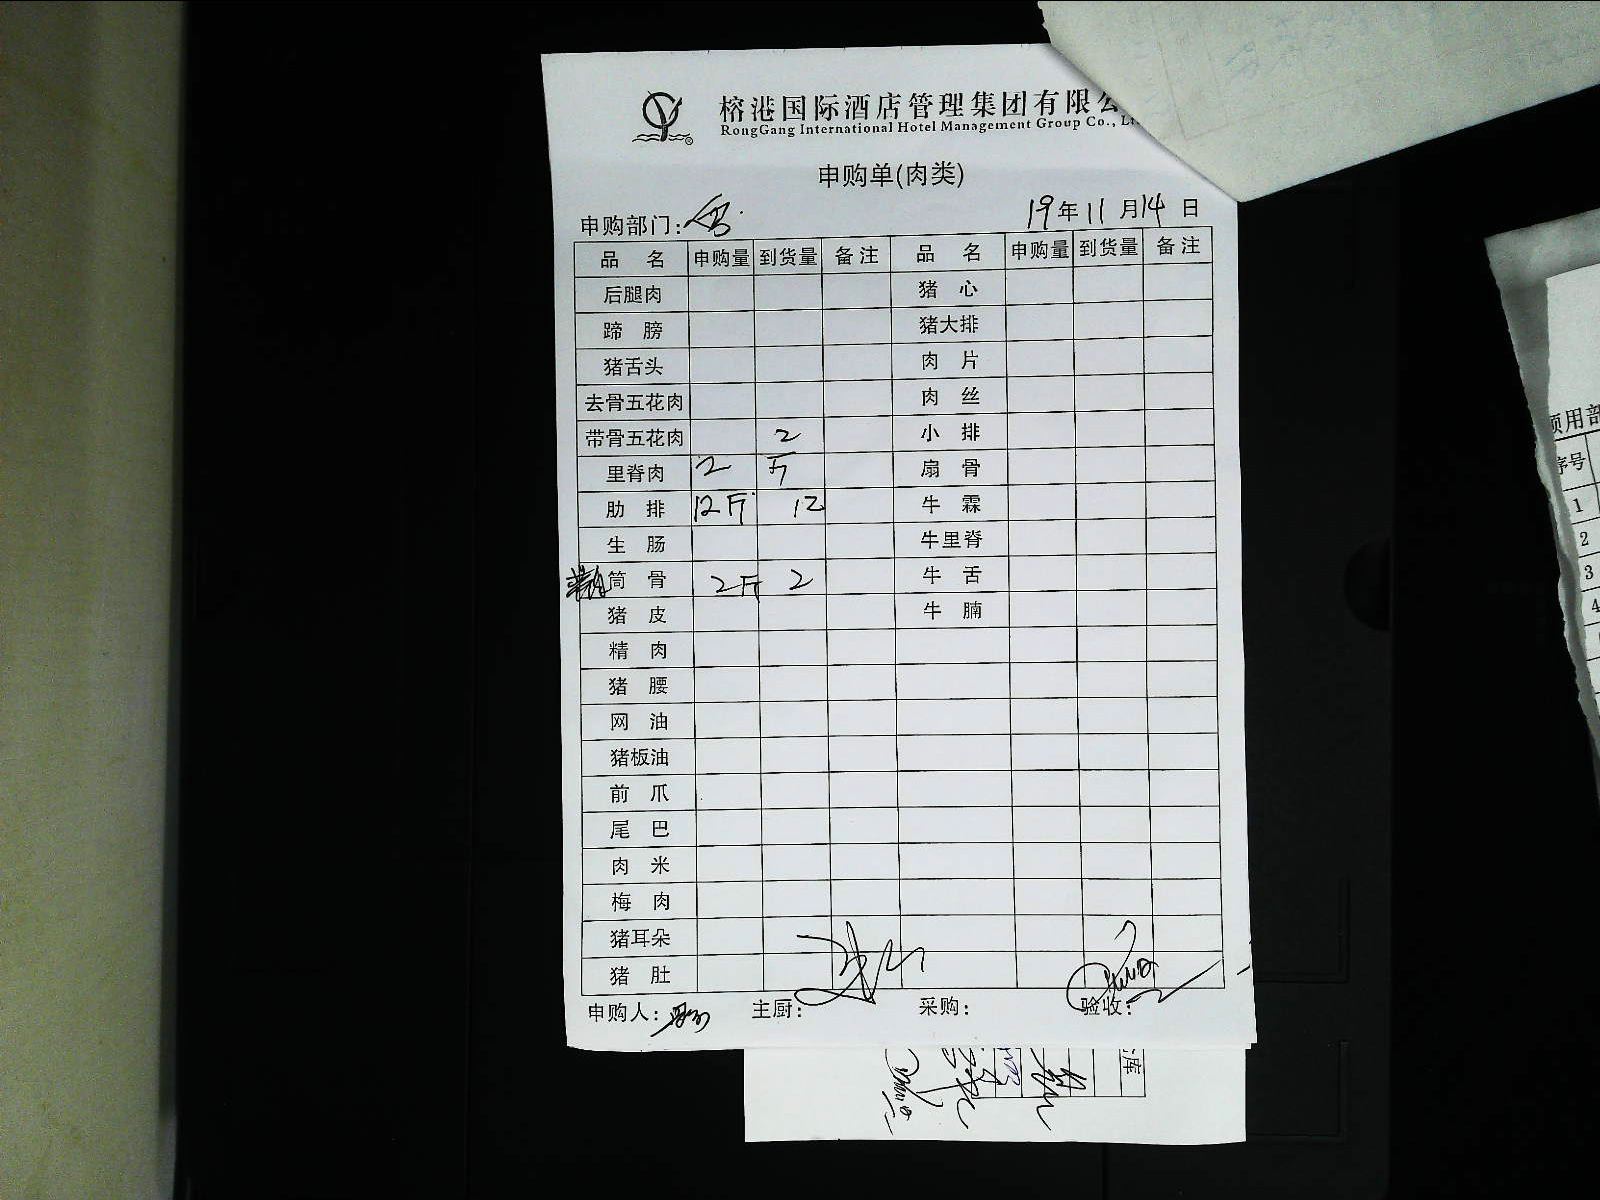 榕港国际酒店管理集团有限公
RongGang International Hotel Management Group Co., Lt
申购单(肉类)
申购部门:
19年11月14日
品 名 申购量 到货量 备注 品 名 申购量 到货量 备注
后腿肉 猪 心
蹄 膀 猪大排
猪舌头 肉 片
去骨五花肉 肉 丝
带骨五花肉 2 小 排
里脊肉 2 斤 扇 骨
肋 排 12斤 12 牛 霖
生 肠 牛里脊
筒 骨 2斤 2 牛 舌
猪 皮 牛 腩
精 肉
猪 腰
网 油
猪板油
前 爪
尾 巴
肉 米
梅 肉
猪耳朵
猪 肚
申购人: 主厨: 采购: 验收:
库
领用部
序号
1
2
3
4